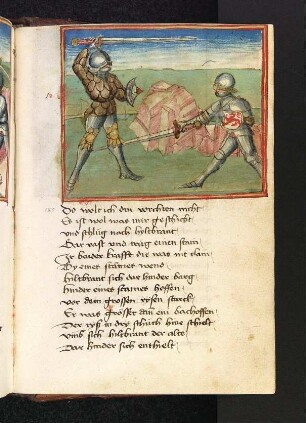 Do wolt ich din vorchten nicht
Es ist wol was mir geschicht
und schlug nach hyltbrant
Dar vast und wag einen stain
Ir baider krafft die was nit clain
By einer staines wend
hiltbrant sich dar hinder barg
hinder eines staines
vor dem grossen rysen starck
Er was grösser dan ein bachoffen
Der ryß in dry schuch hin
Vmb sich hiltbrant der alte
Dar hinder sich enthielt